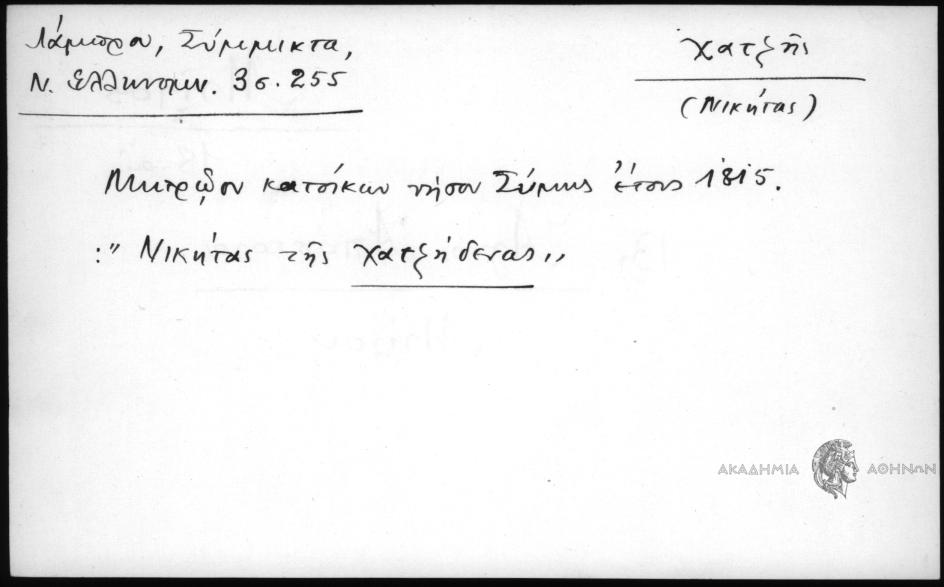 Λάμπρου, Σύμμικτα,
Ν. Ἑλληνομν. 3σ. 255
Χατζῆς
(Νικήτας)
Μητρῷον κατοίκων νήσου Σύμης ἔτους 1815.
:" Νικήτας τῆς Χατζήδενας"
ΑΚΑΔΗΜΙΑ ΑΘΗΝΩΝ